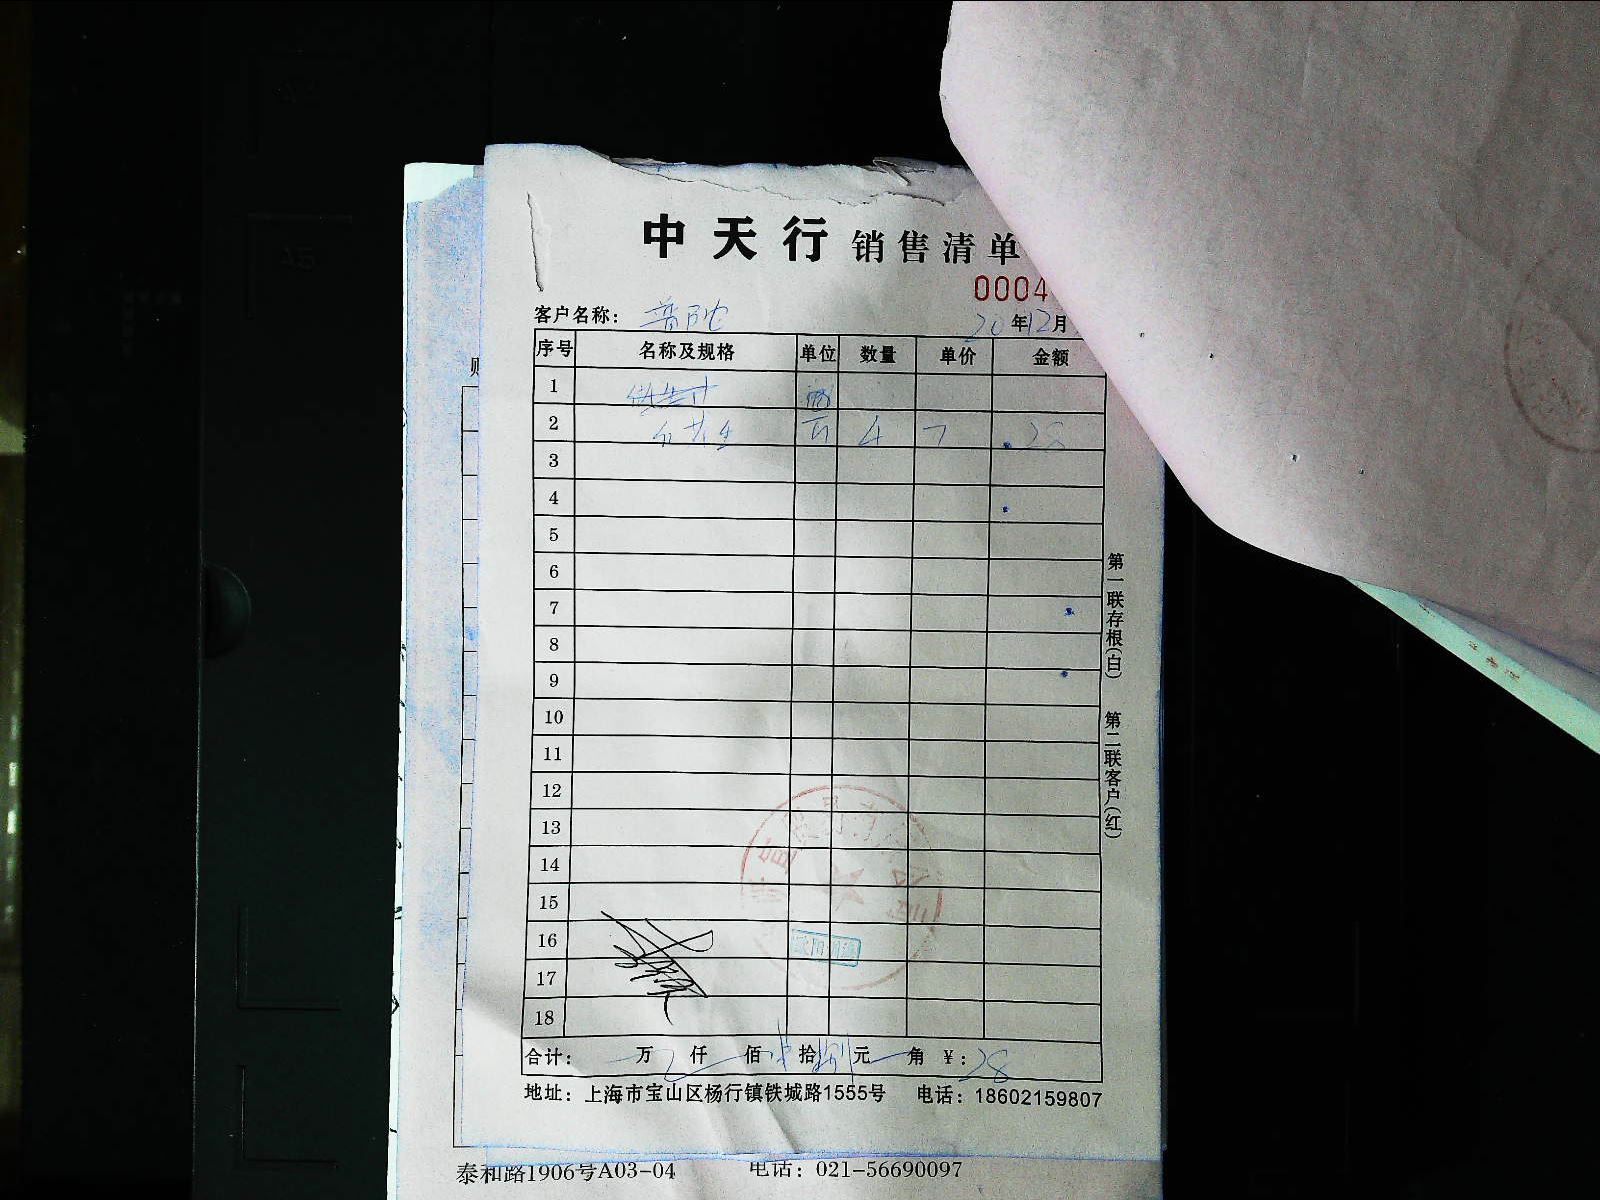 中天行 销售清单
0004
客户名称： 普陀
20 年 12 月
序号 名称及规格 单位 数量 单价 金额
1
2 4 7 28
3
4
5
6
7
8
9
10
11
12
13
14
15
16
17
18
合计： 万 仟 佰 拾 捌 元 角 ￥：28
地址：上海市宝山区杨行镇铁城路1555号 电话：18602159807
第一联存根（白） 第二联客户（红）
泰和路1906号A03-04 电话：021-56690097